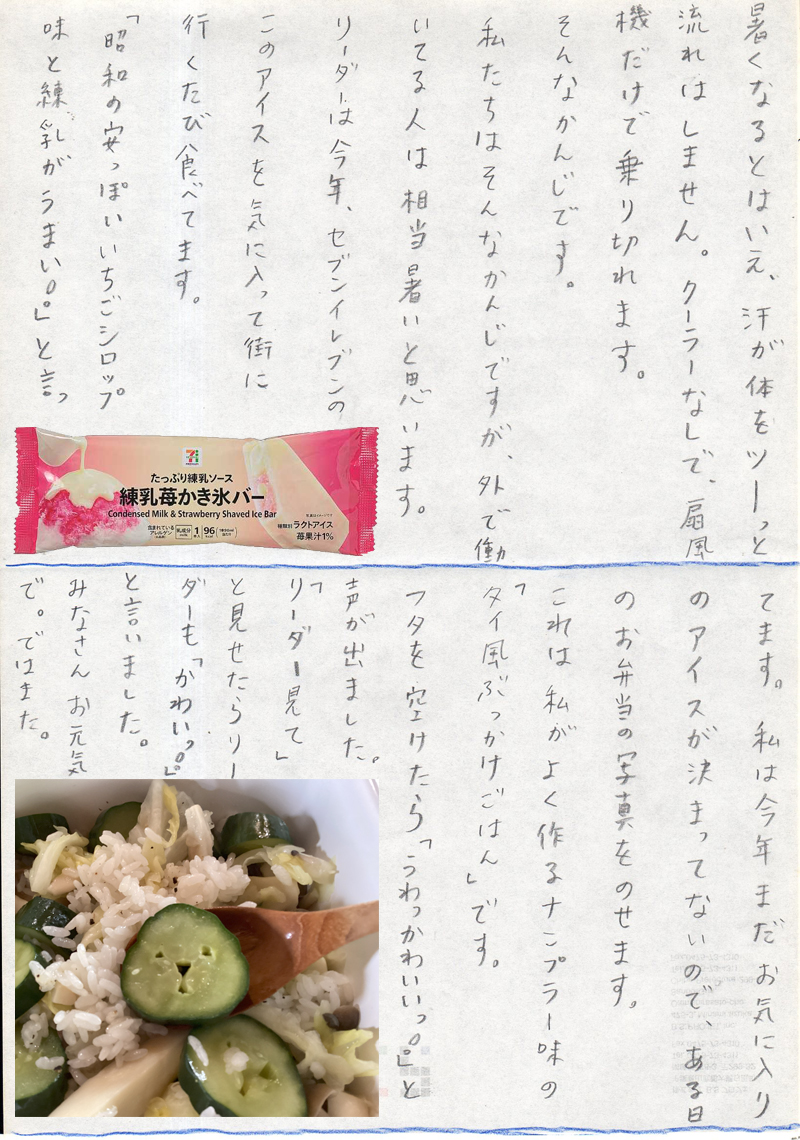 暑くなるとはいえ、汗が体をツーっと
流れはしません。クーラーなしで、扇風
機だけで乗り切れます。
そんなかんじです。
私たちはそんなかんじですが、外で働
いてる人は相当暑いと思います。
リーダーは今年、セブンイレブンの
このアイスを気に入って街に
行くたび食べてます。
「昭和の安っぽいいちごシロップ
味と練乳がうまい。」と言っ
たっぷり練乳ソース
練乳苺かき氷バー
Condensed Milk & Strawberry Shaved Ice Bar
種類別 ラクトアイス
苺果汁1%
含まれている
アレルゲン
乳成分
1
96
てます。私は今年まだお気に入り
のアイスが決まってないので、ある日
のお弁当の写真をのせます。
これは私がよく作るナンプラー味の
「タイ風ぶっかけごはん」です。
フタを空けたら「うわっかわいいっ。」と
声が出ました。
「リーダー見て」
と見せたらリー
ダーも「かわいっ。」
と言いました。
みなさんお元気
で。ではまた。